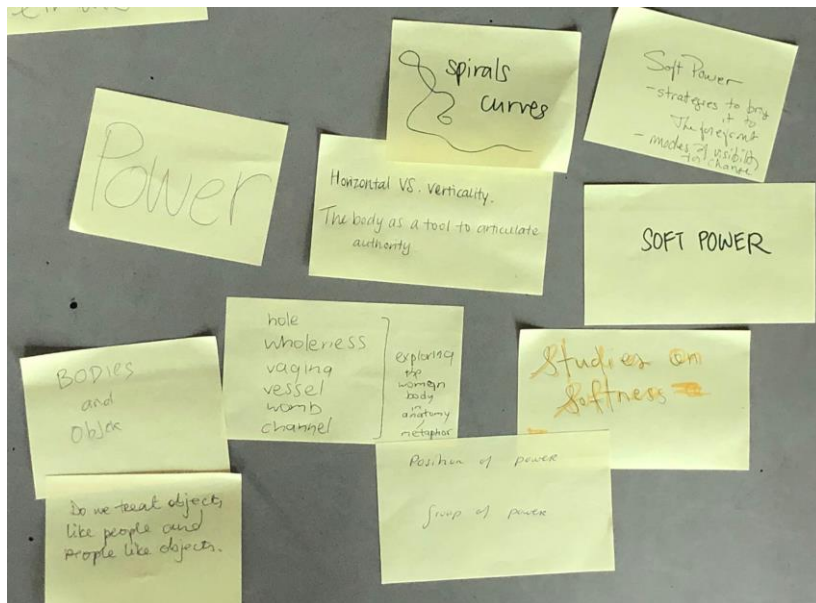 spirals
curves
Soft Power
- strategies to bring
it to
The foreground
- modes of visibility
for change
Power
Horizontal VS. verticality.
The body as a tool to articulate
authority
SOFT POWER
hole
wholeness
vagina
vessel
womb
channel
exploring
the
woman
body
in
anatomy
/
metaphor
Studies on
Softness
BODIES
and
Objek
Position of power
of power
Do we treat objects
like people and
people like objects.